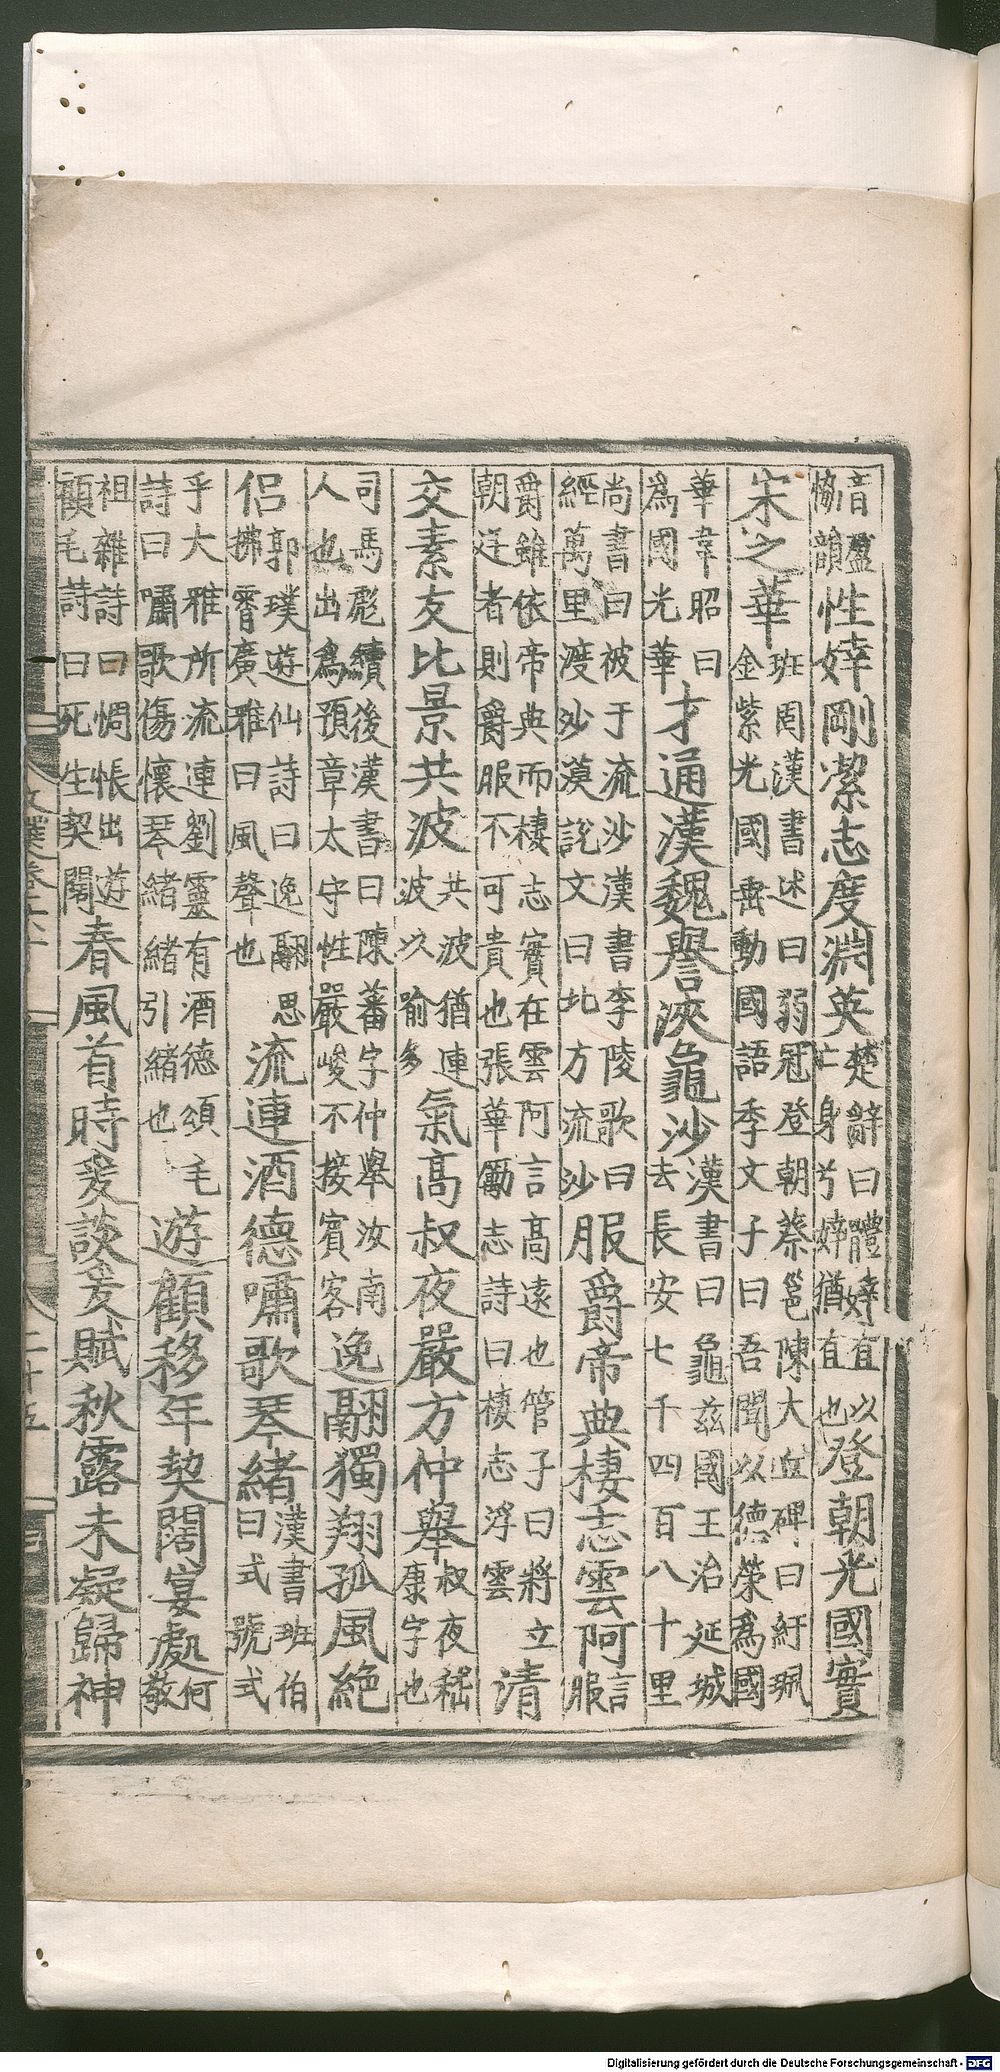 音蘯
愶韻
性婞剛潔志度淵英
楚辭曰體婞直以
亡身兮婞猶直也
登朝光國實
宋之華
班固漢書述曰弱冠登朝蔡邕陳大丘碑曰紆珮
金紫光國垂動國語季文子曰吾聞以德榮爲國
華韋昭曰
爲國光華
才通漢魏譽浹龜沙
漢書曰龜茲國王治延城
去長安七千四百八十里
尚書曰被于流沙漢書李陵歌曰
經萬里渡沙漠說文曰北方流沙
服爵帝典棲志雲阿
言
服
爵雖依帝典而棲志實在雲阿言高遠也管子曰將立
朝廷者則爵服不可貴也張華勵志詩曰棲志浮雲
清
交素友比景共波
共波猶連
波以喻多
氣高叔夜嚴方仲舉
叔夜嵇
康字也
司馬彪續後漢書曰陳蕃字仲舉汝南
人也出爲預章太守性嚴峻不接賓客
逸翮獨翔孤風絶
侶
郭璞遊仙詩曰逸翮思
拂霄廣雅曰風聲也
流連酒德嘯歌琴緒
漢書班伯
曰式號式
乎大雅所流連劉靈有酒德頌毛
詩曰嘯歌傷懷琴緒緒引緒也
遊顧移年契闊宴處
何
敬
祖雜詩曰惆悵出遊
顧毛詩曰死生契闊
春風首時爰談爰賦秋露未凝歸神
文選卷六十
二十五
Digitalisierung gefördert durch die Deutsche Forschungsgemeinschaft - DFG